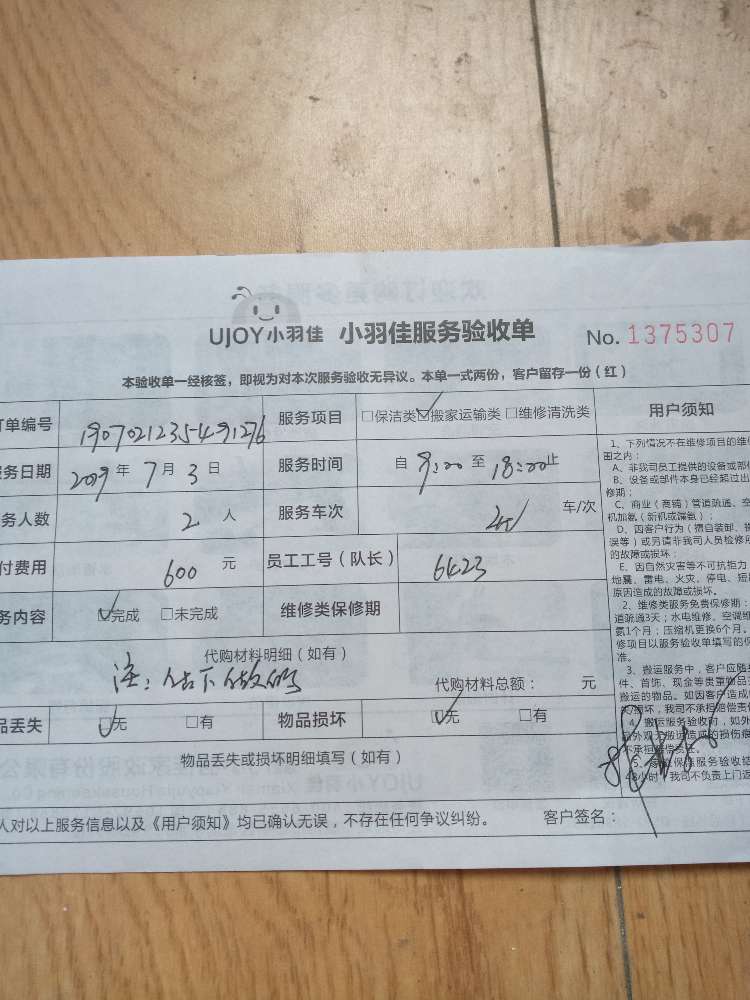 UJOY小羽佳 小羽佳服务验收单 No. 1375307
本验收单一经核签，即视为对本次服务验收无异议。本单一式两份，客户留存一份（红）
订单编号 190702123549 1276 服务项目 □保洁类 ☑搬家运输类 □维修清洗类 用户须知
服务日期 2019 年 7 月 3 日 服务时间 自 9:00 至 18:00 止
务人数 2 人 服务车次 车/次
付费用 600 元 员工工号（队长） 6423
务内容 ☑完成 □未完成 维修类保修期
代购材料明细（如有）
注：
代购材料总额： 元
品丢失 ☑无 □有 物品损坏 ☑无 □有
物品丢失或损坏明细填写（如有）
人对以上服务信息以及《用户须知》均已确认无误，不存在任何争议纠纷。 客户签名：
1、下列情况不在维修项目的维
围之内：
A、非我司员工提供的设备或部
B、设备或部件本身已经超过出
修期；
C、商业（商铺）管道疏通、空
机加氨（新机或漏氨）；
D、因客户行为（猜自装卸、
误等）或另请非我司人员检修
的故障或损坏；
E、因自然灾害等不可抗拒力
地震、雷电、火灾、停电、短
原因造成的故障或损坏。
2、维修类服务免费保修期：
道疏通3天；水电维修、空调维
氨1个月；压缩机更换6个月。
修项目以服务验收单填写的保
准。
3、搬运服务中，客户应随
件、首饰、现金等贵重物品
搬运的物品。如因客户造成
失/损坏，我司不承担赔偿责
4、搬运服务验收时，如外
不承担赔偿责任。
服务验收结
48小时，我司不负责上门返